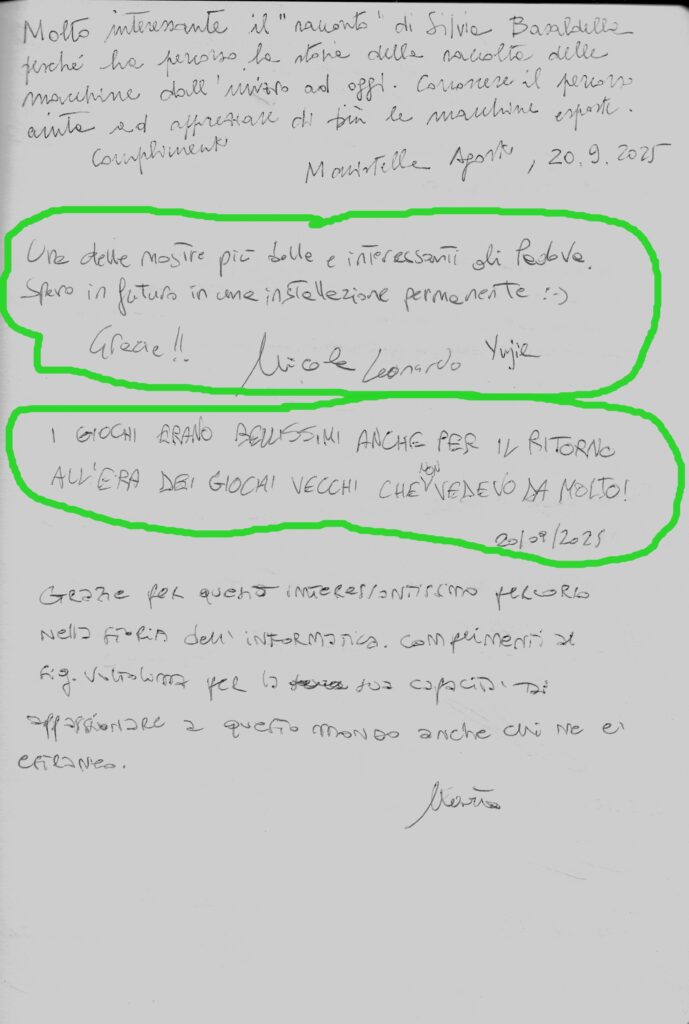 Molto interessante il "racconto" di Silvia Basaldella
perché ha percorso la storia della raccolta delle
macchine dall'inizio ad oggi. Conoscere il percorso
aiuta ad apprezzare di più le macchine esposte.
Complimenti
Maristella Agosti, 20.9.2025
Una delle mostre più belle e interessanti di Padova.
Spero in futuro in una installazione permanente :-)
Grazie!!
Nicola Leonardo Yujie
I GIOCHI ERANO BELLISSIMI ANCHE PER IL RITORNO
ALL'ERA DEI GIOCHI VECCHI CHE NON VEDEVO DA MOLTO!
20/09/2025
Grazie per questo interessantissimo percorso
nella storia dell'informatica. Complimenti al
sig. per la sua capacità di
appassionare a questo mondo anche chi ne è
estraneo.